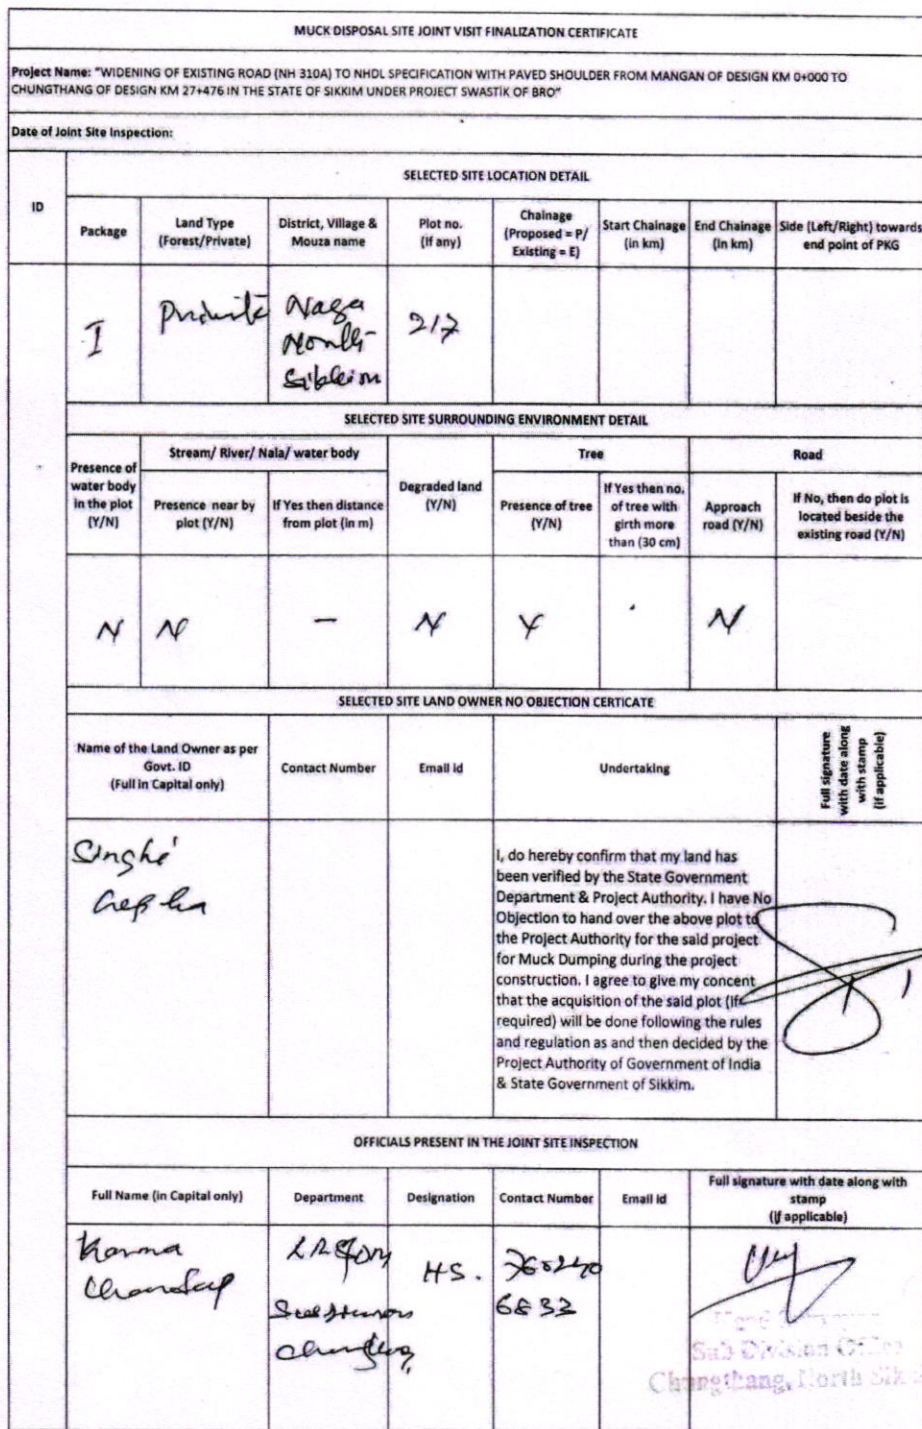 MUCK DISPOSAL SITE JOINT VISIT FINALIZATION CERTIFICATE
Project Name: "WIDENING OF EXISTING ROAD (NH 310A) TO NHDL SPECIFICATION WITH PAVED SHOULDER FROM MANGAN OF DESIGN KM 0+000 TO
CHUNGTHANG OF DESIGN KM 27+476 IN THE STATE OF SIKKIM UNDER PROJECT SWASTIK OF BRO"
Date of Joint Site Inspection:
ID
SELECTED SITE LOCATION DETAIL
Package
Land Type
(Forest/Private)
District, Village &
Mouza name
Plot no.
(If any)
Chainage
(Proposed = P/
Existing = E)
Start Chainage
(in km)
End Chainage
(in km)
Side (Left/Right) towards
end point of PKG
I
Private
Naga
North
Sikkim
217
SELECTED SITE SURROUNDING ENVIRONMENT DETAIL
Presence of
water body
in the plot
(Y/N)
Stream/ River/ Nala/ water body
Presence near by
plot (Y/N)
If Yes then distance
from plot (in m)
Degraded land
(Y/N)
Tree
Presence of tree
(Y/N)
If Yes then no.
of tree with
girth more
than (30 cm)
Road
Approach
road (Y/N)
If No, then do plot is
located beside the
existing road (Y/N)
N
N
—
N
Y
N
SELECTED SITE LAND OWNER NO OBJECTION CERTICATE
Name of the Land Owner as per
Govt. ID
(Full in Capital only)
Contact Number
Email id
Undertaking
Full signature
with date along
with stamp
(if applicable)
Singhi
I, do hereby confirm that my land has
been verified by the State Government
Department & Project Authority. I have No
Objection to hand over the above plot to
the Project Authority for the said project
for Muck Dumping during the project
construction. I agree to give my concent
that the acquisition of the said plot (if
required) will be done following the rules
and regulation as and then decided by the
Project Authority of Government of India
& State Government of Sikkim.
OFFICIALS PRESENT IN THE JOINT SITE INSPECTION
Full Name (in Capital only)
Department
Designation
Contact Number
Email id
Full signature with date along with
stamp
(if applicable)
Karma
H.S.
760240
6833
Sub Division Office
Chungthang, North Sik